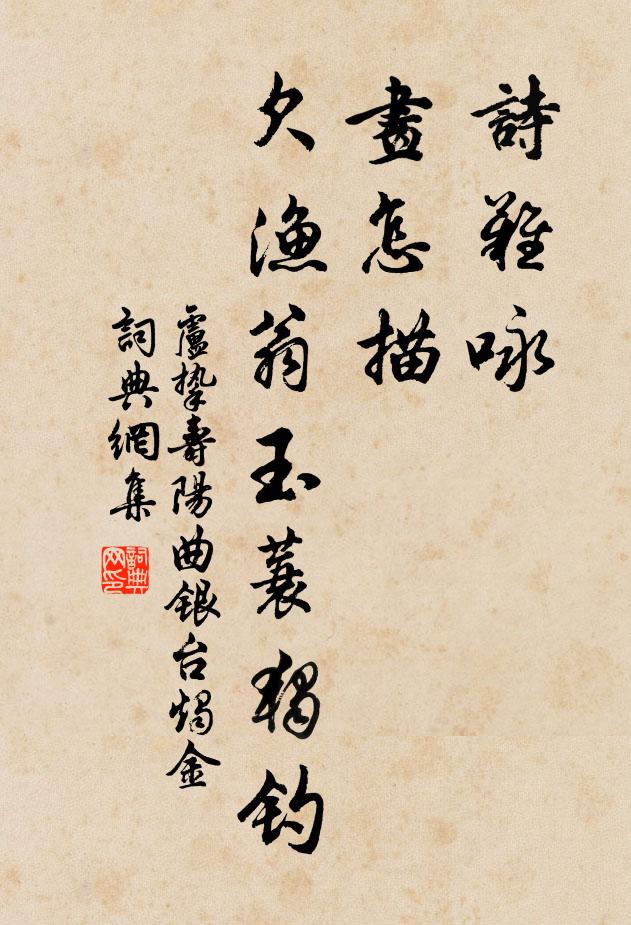 詩難咏
畫怎描
欠漁翁玉蓑獨釣
盧摯壽陽曲銀台燭金
詞典網集
詞典网印